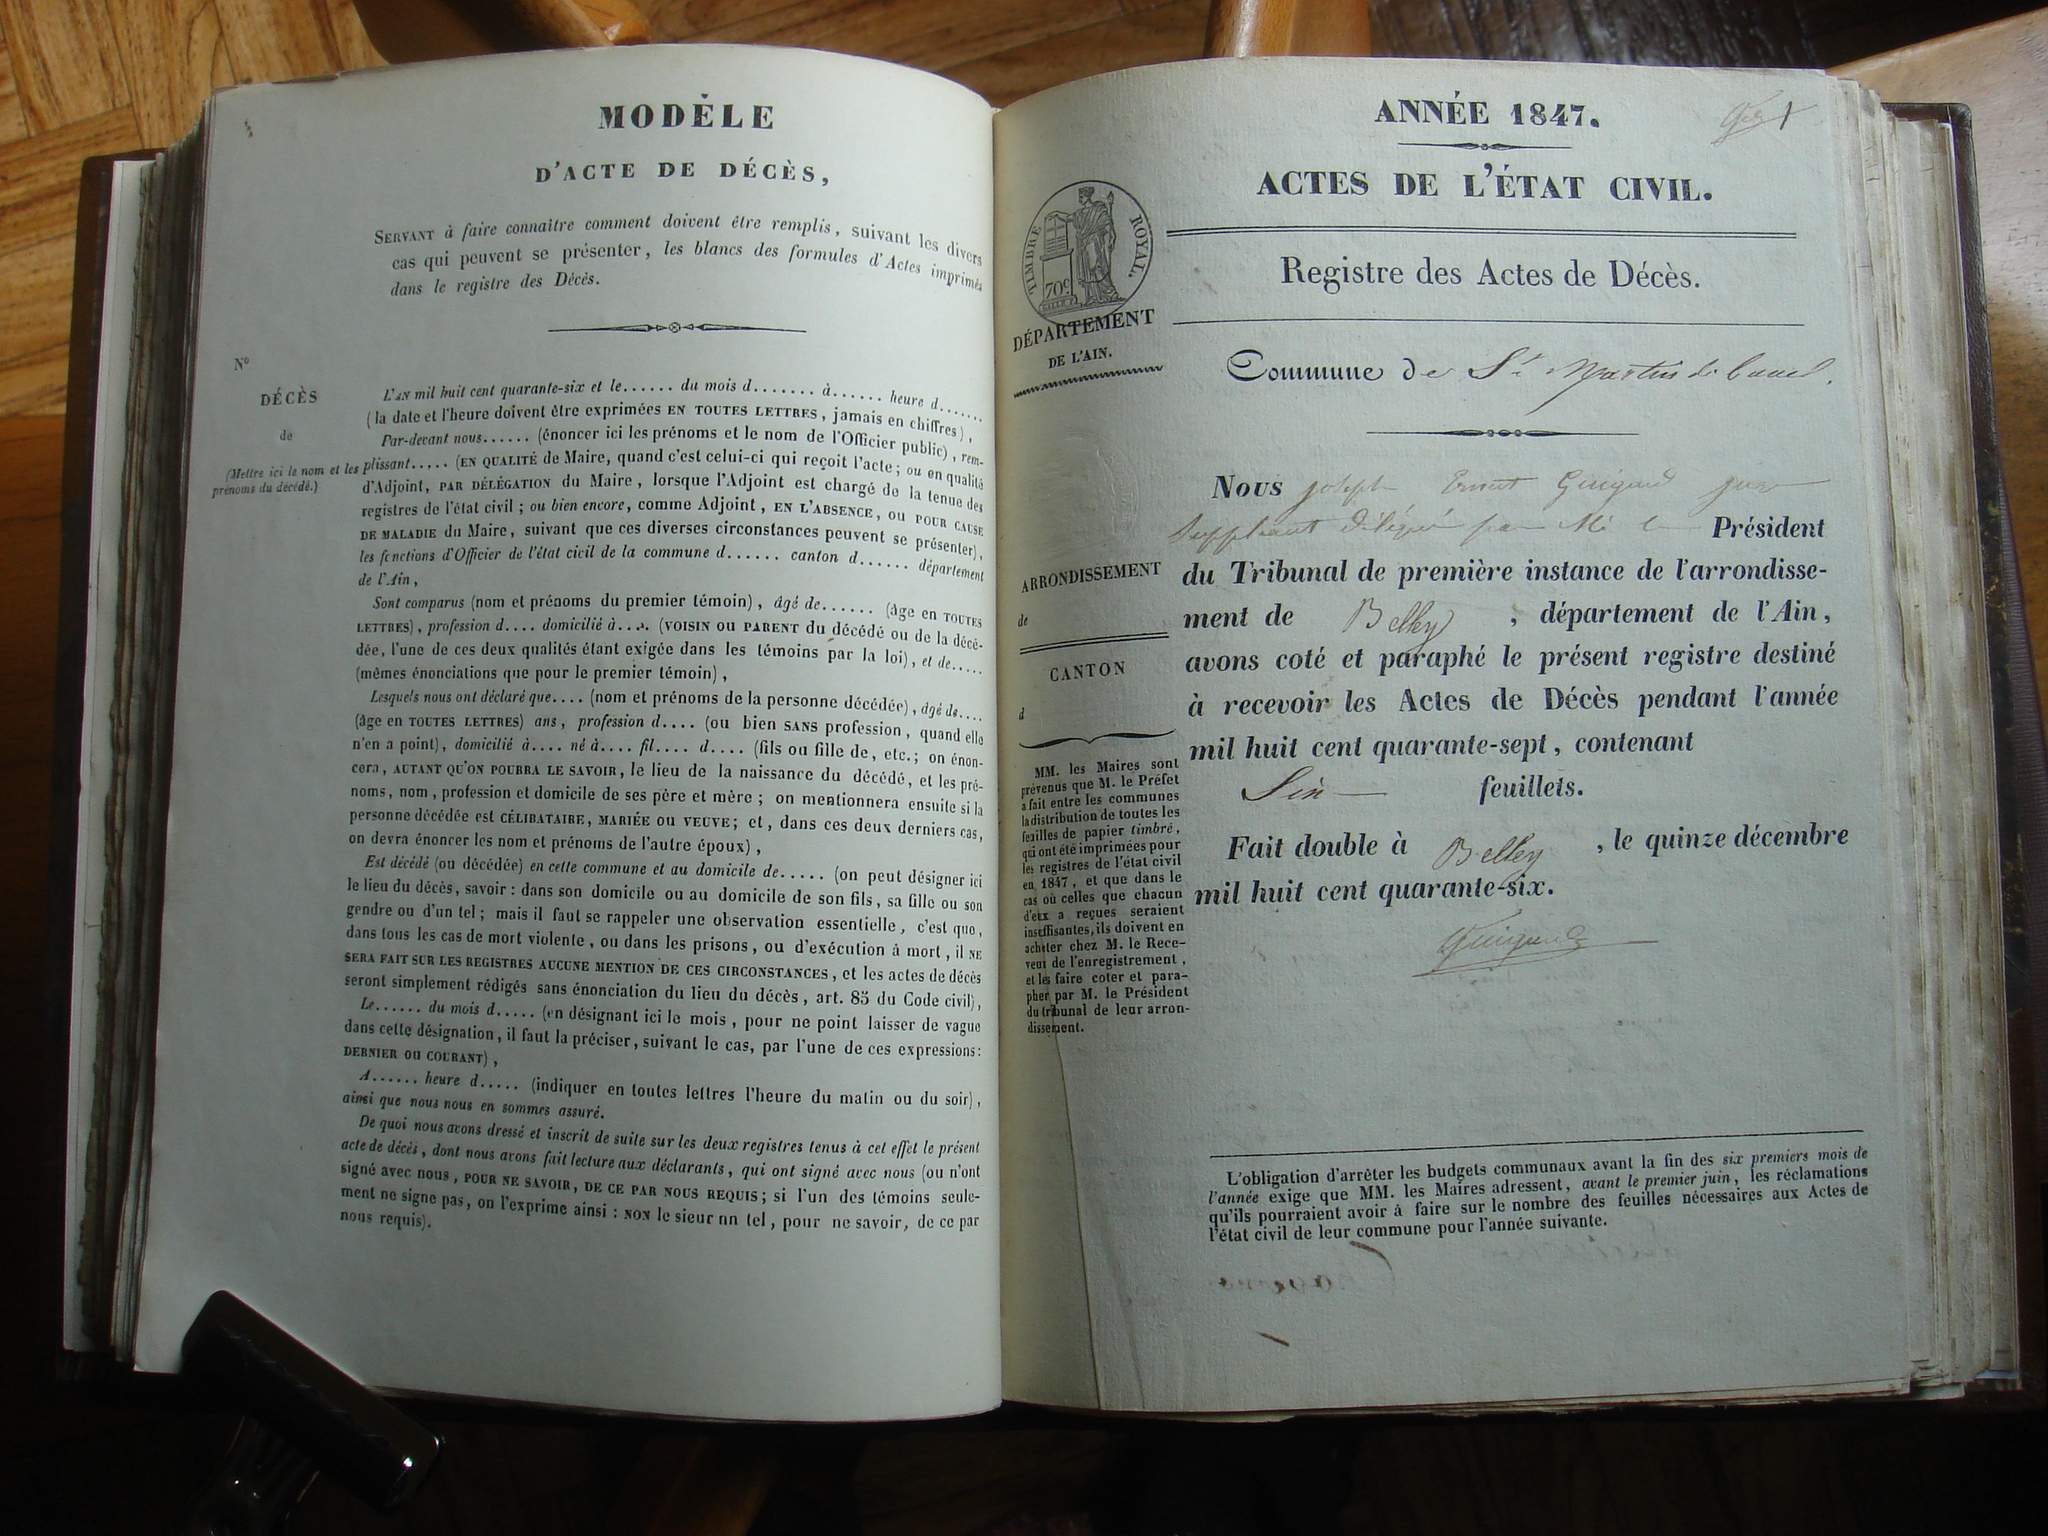 MODÈLE
D'ACTE DE DÉCÈS,
SERVANT à faire connaître comment doivent être remplis, suivant les divers
cas qui peuvent se présenter, les blancs des formules d'Actes imprimés
dans le registre des Décès.
N°
DÉCÈS
de
(Mettre ici le nom et les
prénoms du décédé.)
L'AN mil huit cent quarante-six et le...... du mois d....... à...... heure d.......
(la date et l'heure doivent être exprimées EN TOUTES LETTRES, jamais en chiffres),
Par-devant nous...... (énoncer ici les prénoms et le nom de l'Officier public), rem-
plissant..... (EN QUALITÉ de Maire, quand c'est celui-ci qui reçoit l'acte; ou en qualité
d'Adjoint, PAR DÉLÉGATION du Maire, lorsque l'Adjoint est chargé de la tenue des
registres de l'état civil; ou bien encore, comme Adjoint, EN L'ABSENCE, OU POUR CAUSE
DE MALADIE du Maire, suivant que ces diverses circonstances peuvent se présenter),
les fonctions d'Officier de l'état civil de la commune d...... canton d...... département
de l'Ain,
Sont comparus (nom et prénoms du premier témoin), âgé de...... (âge en TOUTES
LETTRES), profession d.... domicilié à.... (VOISIN OU PARENT du décédé ou de la décé-
dée, l'une de ces deux qualités étant exigée dans les témoins par la loi), et de.....
(mêmes énonciations que pour le premier témoin),
Lesquels nous ont déclaré que.... (nom et prénoms de la personne décédée), âgé de....
(âge en TOUTES LETTRES) ans, profession d.... (ou bien SANS profession, quand elle
n'en a point), domicilié à.... né à.... fil.... d.... (fils ou fille de, etc.; on énon-
cera, AUTANT QU'ON POURRA LE SAVOIR, le lieu de la naissance du décédé, et les pré-
noms, nom, profession et domicile de ses père et mère; on mentionnera ensuite si la
personne décédée est CÉLIBATAIRE, MARIÉE OU VEUVE; et, dans ces deux derniers cas,
on devra énoncer les nom et prénoms de l'autre époux),
Est décédé (ou décédée) en cette commune et au domicile de..... (on peut désigner ici
le lieu du décès, savoir: dans son domicile ou au domicile de son fils, sa fille ou son
gendre ou d'un tel; mais il faut se rappeler une observation essentielle, c'est que,
dans tous les cas de mort violente, ou dans les prisons, ou d'exécution à mort, il NE
SERA FAIT SUR LES REGISTRES AUCUNE MENTION DE CES CIRCONSTANCES, et les actes de décès
seront simplement rédigés sans énonciation du lieu du décès, art. 85 du Code civil),
Le...... du mois d..... (en désignant ici le mois, pour ne point laisser de vague
dans cette désignation, il faut la préciser, suivant le cas, par l'une de ces expressions:
DERNIER OU COURANT),
A...... heure d..... (indiquer en toutes lettres l'heure du matin ou du soir),
ainsi que nous nous en sommes assuré.
De quoi nous avons dressé et inscrit de suite sur les deux registres tenus à cet effet le présent
acte de décès, dont nous avons fait lecture aux déclarants, qui ont signé avec nous (ou n'ont
signé avec nous, POUR NE SAVOIR, DE CE PAR NOUS REQUIS; si l'un des témoins seule-
ment ne signe pas, on l'exprime ainsi: NON le sieur un tel, pour ne savoir, de ce par
nous requis).
ANNÉE 1847.
ACTES DE L'ÉTAT CIVIL.
TIMBRE ROYAL.
70c
Registre des Actes de Décès.
DÉPARTEMENT
DE L'AIN.
Commune de St Martin de Bavel.
Nous joseph Ernest Guigard juge
Suppléant délégué par Mr le Président
du Tribunal de première instance de l'arrondisse-
ment de Belley, département de l'Ain,
avons coté et paraphé le présent registre destiné
à recevoir les Actes de Décès pendant l'année
mil huit cent quarante-sept, contenant
Six feuillets.
Fait double à Belley, le quinze décembre
mil huit cent quarante-six.
Guigard
ARRONDISSEMENT
de
CANTON
d
MM. les Maires sont
prévenus que M. le Préfet
a fait entre les communes
la distribution de toutes les
feuilles de papier timbré,
qui ont été imprimées pour
les registres de l'état civil
en 1847, et que dans le
cas où celles que chacun
d'eux a reçues seraient
insuffisantes, ils doivent en
acheter chez M. le Rece-
veur de l'enregistrement,
et les faire coter et para-
pher par M. le Président
du tribunal de leur arron-
dissement.
L'obligation d'arrêter les budgets communaux avant la fin des six premiers mois de
l'année exige que MM. les Maires adressent, avant le premier juin, les réclamations
qu'ils pourraient avoir à faire sur le nombre des feuilles nécessaires aux Actes de
l'état civil de leur commune pour l'année suivante.